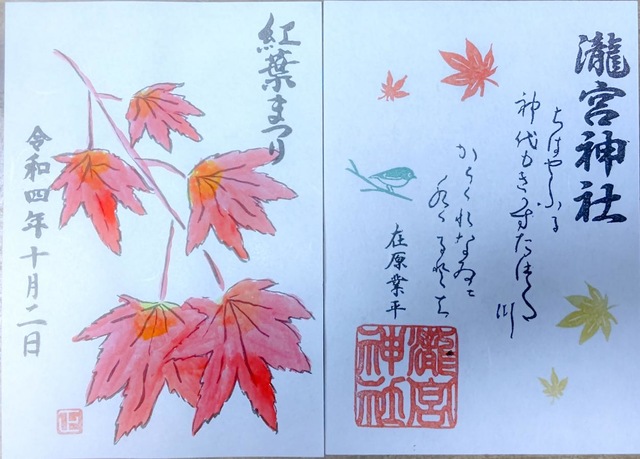 瀧宮神社
ちはやふる
神代もきかずたつた川
からくれなゐに
水くくるとは
在原業平
瀧宮
神社
紅葉まつり
令和四年十月二日